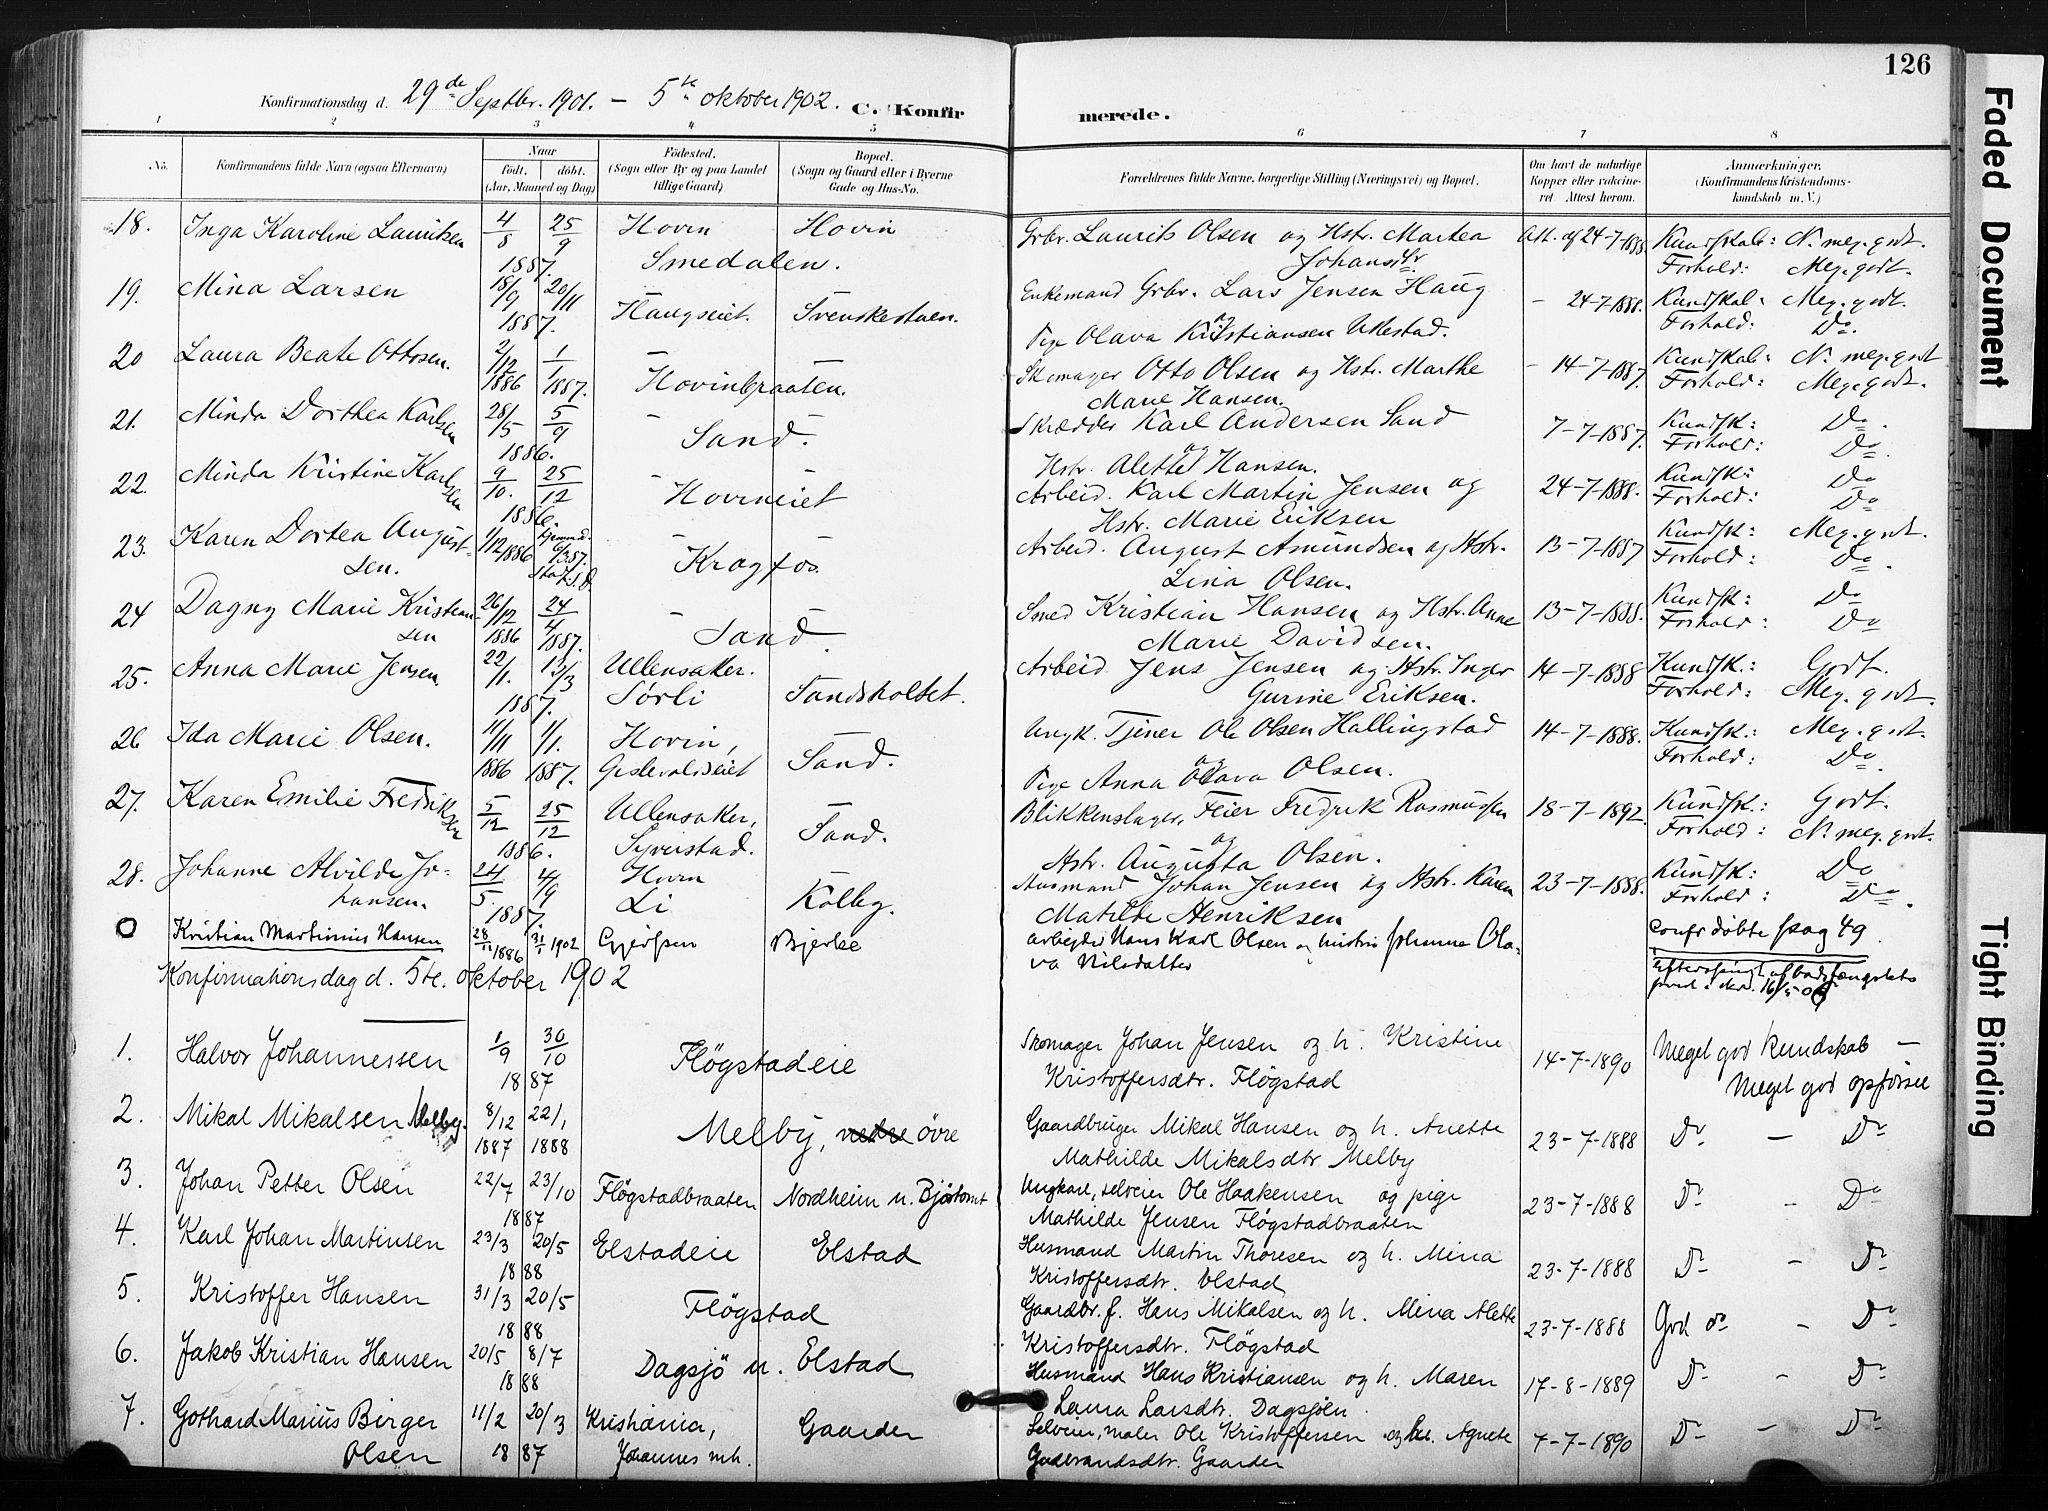 126
Konfirmationsdag d. 29de Septbr. 1901. – 5te oktober 1902. C. Konfirmerede.
1 2 3 4 5 6 7 8
No. Konfirmandens fulde Navn (ogsaa Efternavn) Naar født. døbt. (Aar, Maaned og Dag) Fødested. (Sogn eller By og paa Landet tillige Gaard) Bopæl. (Sogn og Gaard eller i Byerne Gade og Hus-No. Forældrenes fulde Navne, borgerlige Stilling (Næringsvei) og Bopæl. Om havt de naturlige Kopper eller vakcineret. Attest herom. Anmærkninger. (Konfirmandens Kristendomskundskab m. V.)
18. Inga Karoline Lauritsen 4/8 25/9 1887. Hovin Hovin Smedalen. Grbr. Laurits Olsen og Hstr. Martea Johansdtr Att. af 24-7-1888. Kundskab: N. meg. godt. Forhold: Meg. godt.
19. Mina Larsen 18/9 20/11 1887. Haugseiet. Svenskestuen. Enkemand Grbr. Lars Jensen Haug og Pige Olava Kristiansen Ullestad. – 24-7-1888. Kundskab: Meg. godt. Forhold: Do.
20 Laura Beate Ottosen. 2/12 1886 1/1 1887. – Hovinbraaten. – Skomager Otto Olsen og Hstr. Marthe Marie Hansen. – 14-7-1887. Kundskab: N. meg. godt Forhold: Meg. godt.
21. Minda Dorthea Karlsen 28/5 5/9 1886. – Sand. – Skrædder Karl Andersen Sand og Hstr. Alette Hansen. 7-7-1887. Kundsk: Do. Forhold: Do.
22. Minda Kristine Karlsen 9/10. 25/12 1886. – Hovineiet – Arbeid. Karl Martin Jensen og Hstr. Marie Eriksen 24-7-1888. Kundsk: Do Forhold: Do
23. Karen Dortea Augustsen. 1/12 1886 Hjemmed. – Kragfos – Arbeid. August Amundsen og Hstr. Lina Olsen. 13-7-1887 Kundsk: Meg. godt. Forhold: Do.
24 Dagny Marie Kristiansen 26/12 1886 24/4 1887. – Sand. – Smed Kristian Hansen og Hstr. Anne Marie Davidsen. 13-7-1888. Kundsk: Do Forhold: Do
25. Anna Marie Jensen. 22/1. 13/3 1887. Ullensaker. Sørli Sandsholtet. Arbeid. Jens Jensen og Hstr. Inger Gurine Eriksen. 14-7-1888 Kundsk.: Godt. Forhold: Meg. godt.
26 Ida Marie Olsen. 11/11 1886 1/1. 1887. Hovin, Gislevoldseiet Sand. Ungk. Tjener Ole Olsen Hallingstad og Pige Anna Olava Olsen. 14-7-1888. Kundsk: Meg. godt. Forhold: Do.
27. Karen Emilie Fredriksen 5/12 25/12 1886. Ullensaker, Syverstad. Sand. Blikkenslager, Feier Fredrik Rasmussen og Hstr. Augusta Olsen. 18-7-1892. Kundsk.: Godt. Forhold: N. meg. godt.
28. Johanne Alvilde Johansen. 24/5. 4/9 1887. Hovin Li Kolby. Husmand Johan Jensen og Hstr. Karen Matilde Henriksen 23-7-1888. Kundsk: Do Forhold: Do.
O Kristian Martinius Hansen 28/12 1886 31/1 1902 Gjerdsen Bjerke arbejder Hans Karl Olsen og hustru Johanna Olava Nilsdatter confr døbte pag 49.
Konfirmationsdag d. 5te. oktober 1902
1. Halvor Johannessen 1/9 30/10 1887 Fløgstadeie Skomager Johan Jensen og h. Kristine Kristoffersdtr. Fløgstad 14-7-1890 Meget god kundskab – Meget god opførsel
2. Mikal Mikalsen Melby. 8/12 1887 22/1 1888 Melby, nedre övre Gaardbruger Mikal Hansen og h. Anette Mathilde Mikalsdtr Melby 23-7-1888 Do – Do
3. Johan Petter Olsen 22/7 23/10 1887 Fløgstadbraaten Nordheim u. Bjørtomt Ungkarl, selveier Ole Haakensen og pige Mathilde Jensen Fløgstadbraaten 23-7-1888 Do – Do
4. Karl Johan Martinsen 23/3 20/5 1888 Elstadeie Elstad Husmand Martin Thoresen og h. Mina Kristoffersdtr. Elstad 23-7-1888 Do – Do
5. Kristoffer Hansen 31/3 20/5 1888 Fløgstad Gaardbr. f. Hans Mikalsen og h. Mina Alette Kristoffersdtr. Fløgstad 23-7-1888 God do – Do
6. Jakob Kristian Hansen 20/5 8/7 1888 Dagsjö u. Elstad Husmand Hans Kristiansen og h. Maren Laura Larsdtr. Dagsjøen. 17-8-1889 Do – Do
7. Gothard Marius Birger Olsen 11/2 20/3 1887 Kristiania, Johannes mh. Gaarder Selveier, maler Ole Kristoffersen og h. Agnete Gudbrandsdtr. Gaarder 7-7-1890 Do – Do
Faded Document
Tight Binding